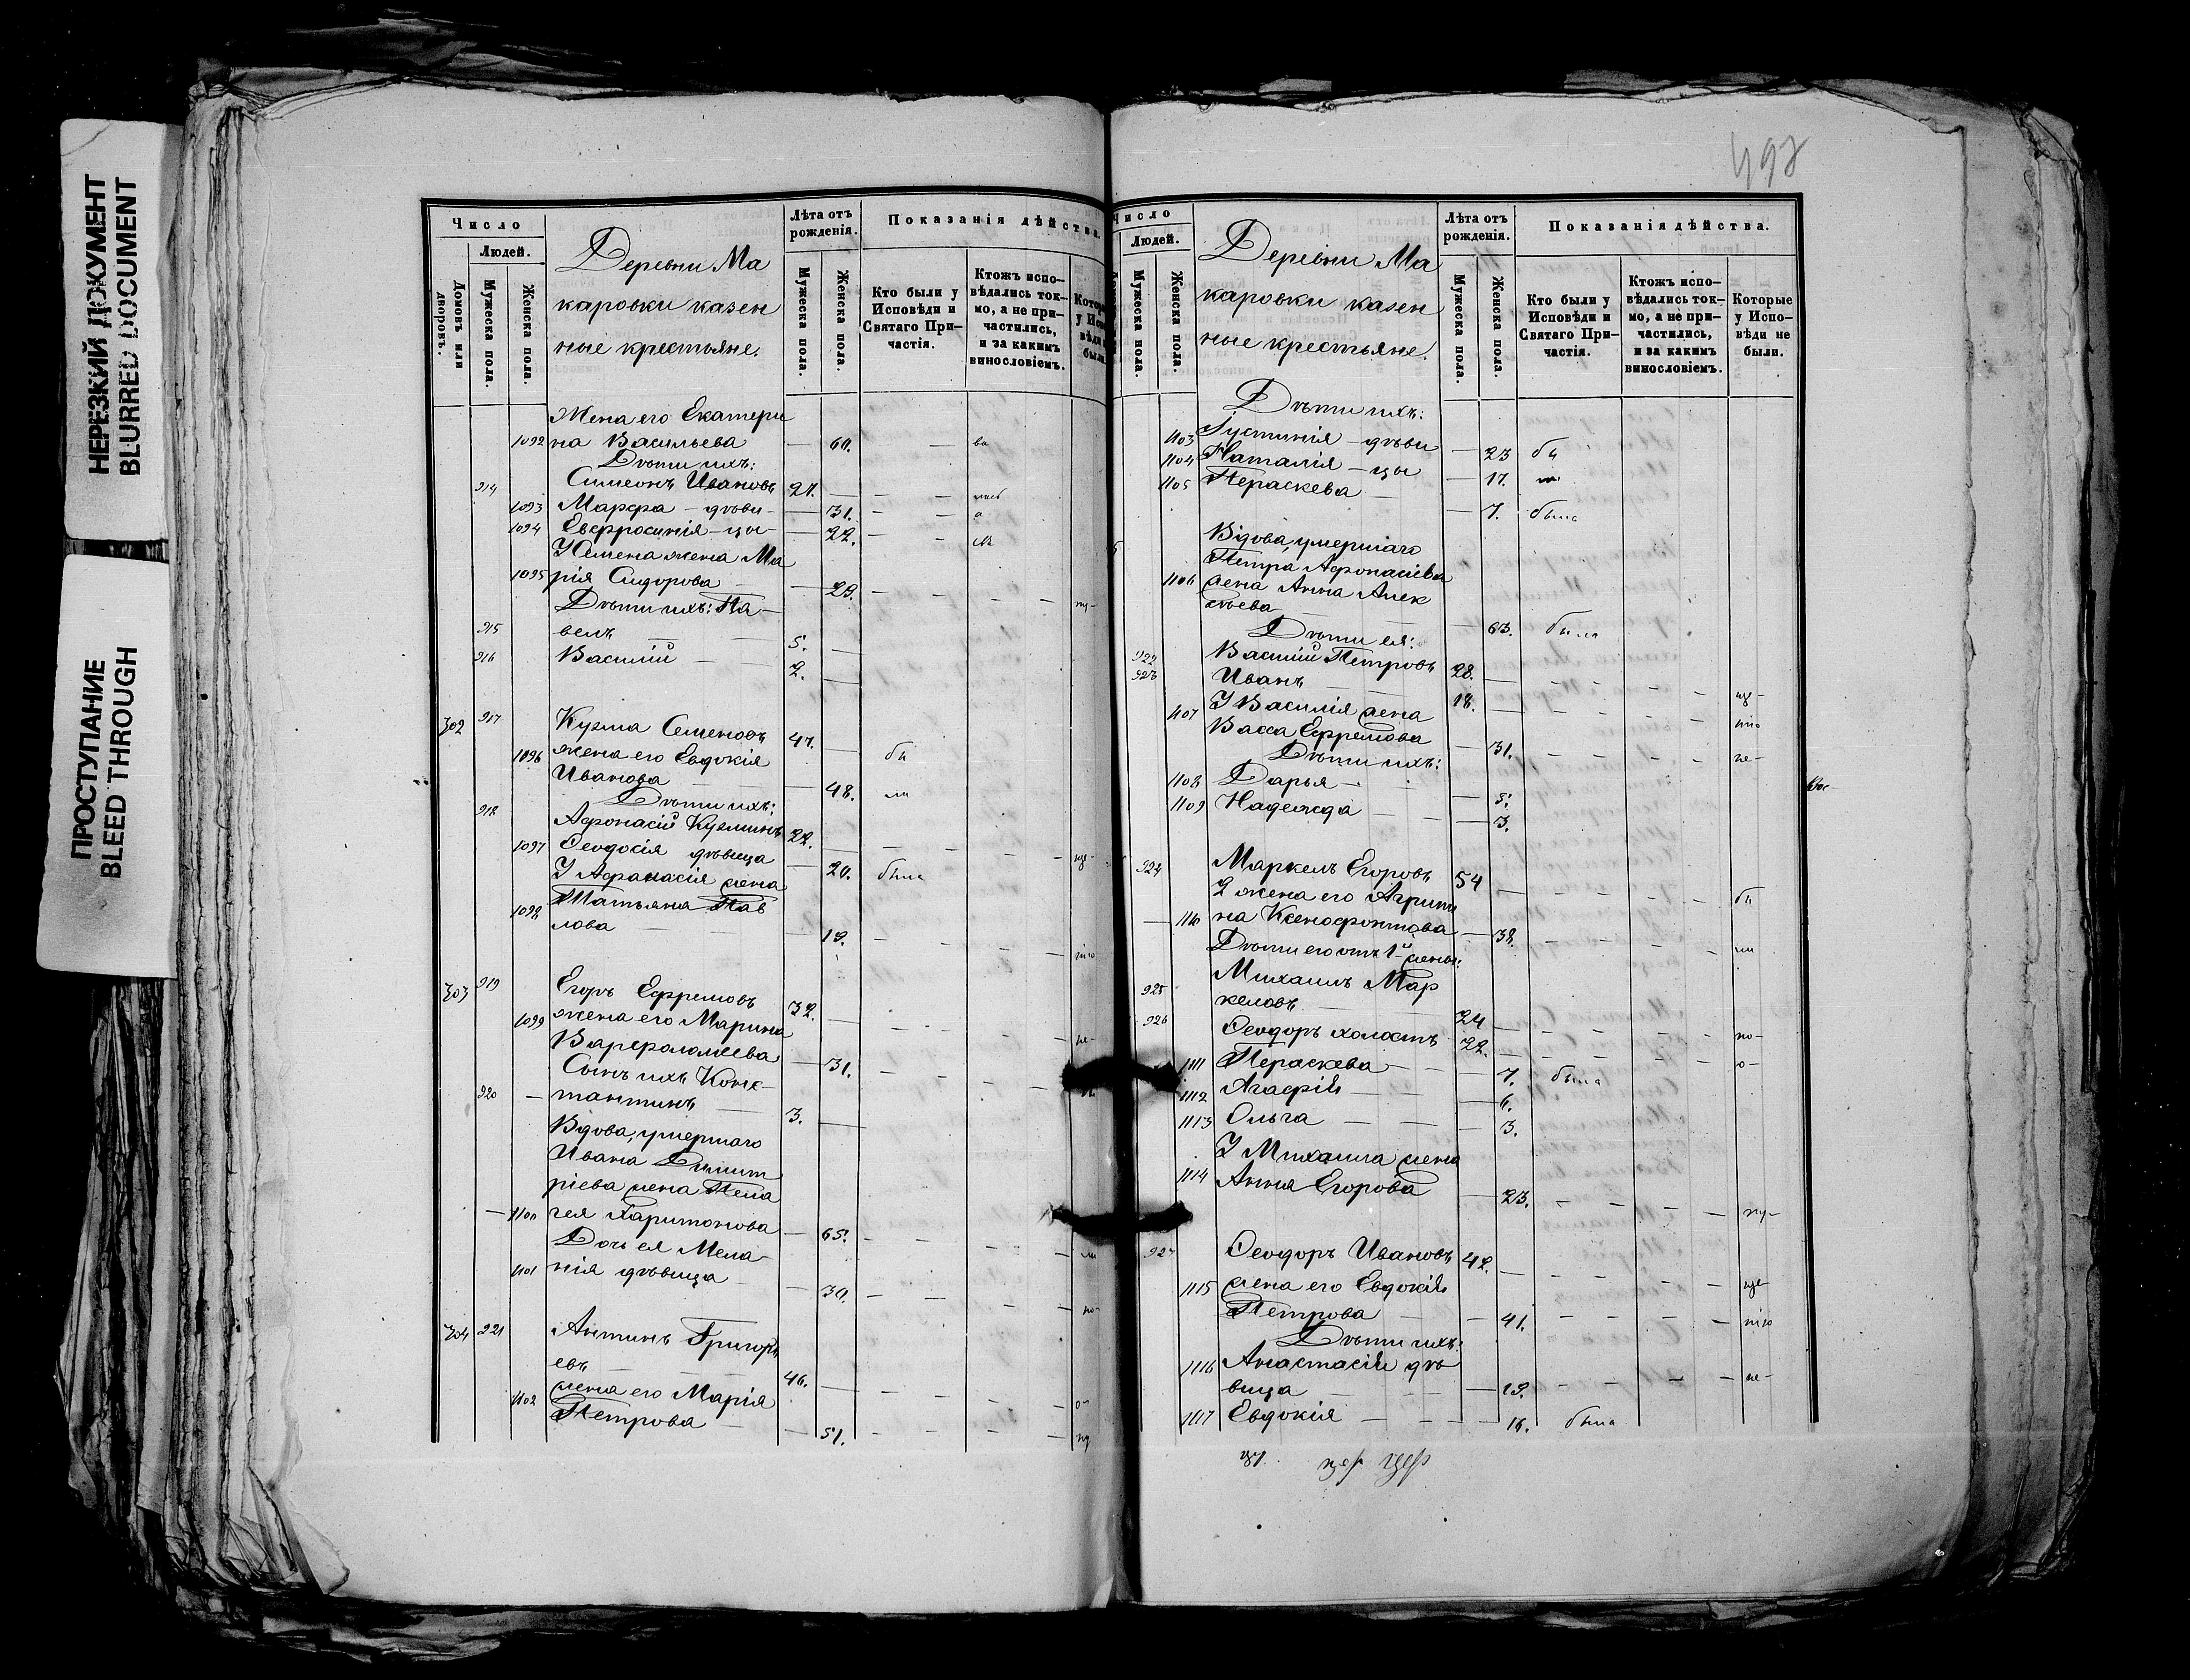 НЕРЕЗКИЙ ДОКУМЕНТ
BLURRED DOCUMENT
ПРОСТУПАНИЕ
BLEED THROUGH
Число
Людей.
Домовъ или дворовъ.
Мужеска пола.
Женска пола.
Деревни Ма
каровки казен
ные крестьяне.
Лѣта отъ рожденія.
Мужеска пола.
Женска пола.
Показанія дѣйства.
Кто были у Исповѣди и Святаго При-частія.
Ктожъ испо-вѣдались ток-мо, а не при-частились, и за какимъ винословіемъ.
Жена его Екатери
1092 на Васильева — 60.
Дѣти ихъ:
914 Симеонъ Ивановъ 27.
1093 Марфа – дѣви- — 31.
1094 Евфросинія – цы — 22.
У Семена жена Ма
1095 рія Сидорова — 29.
Дѣти ихъ: Па-
915 велъ — 5.
916 Василій — 2.
302 917 Кузма Семеновъ 47. бы
1096 жена его Евдокія
Иванова — 48. ли
Дѣти ихъ:
918 Афонасій Кузминъ 22.
1097 Ѳеодосія дѣвица — 20. была
У Афанасія жена
1098 Татьяна Пав
лова — 19.
303 919 Егоръ Ефремовъ 32.
1099 жена его Марина
Варфоломеева — 31.
Сынъ ихъ Конс-
920 — тантинъ — 3.
Вдова, умершаго
Ивана Димит
ріева жена Пела
— 1100 гея Харитонова — 65.
Дочь ея Мела-
1101 нія дѣвица — 30.
304 921 Антипъ Григорь
евъ — 46.
1102 жена его Марія
Петрова — 51.
497
Число
Людей.
Мужеска пола.
Женска пола.
Деревни Ма
каровки казен
ные крестьяне.
Лѣта отъ рожденія.
Мужеска пола.
Женска пола.
Показанія дѣйства.
Кто были у Исповѣди и Святаго При-частія.
Ктожъ испо-вѣдались ток-мо, а не при-частились, и за какимъ винословіемъ.
Которые у Испо-вѣди не были.
Дѣти ихъ:
1103 Іустинія – дѣви — 23 бы
1104 Наталія – цы — 17.
1105 Пераскева — 7. была
Вдова, умершаго
Петра Афонасіева
1106 жена Анна Алек
сѣева — 63. была
Дѣти ея:
922 Василій Петровъ 28.
923 Иванъ — 18.
1107 У Василія жена
Васса Ефремова — 31.
Дѣти ихъ:
1108 Дарья — 5.
1109 Надежда — 3.
924 Маркелъ Егоровъ 54
2 жена его Агрипи
— 1110 на Ксенофонтова — 38.
Дѣти его отъ 1й жены:
925 Михаилъ Мар
келовъ 24
926 Ѳеодоръ холостъ 22.
1111 Пераскева — 7. была
1112 Агафія — 6.
1113 Ольга — 3.
У Михаила жена
1114 Анна Егорова — 23.
927 Ѳеодоръ Ивановъ 42.
1115 жена его Евдокія
Петрова — 41.
Дѣти ихъ:
1116 Анастасія дѣ
вица — 19.
1117 Евдокія — 16. была